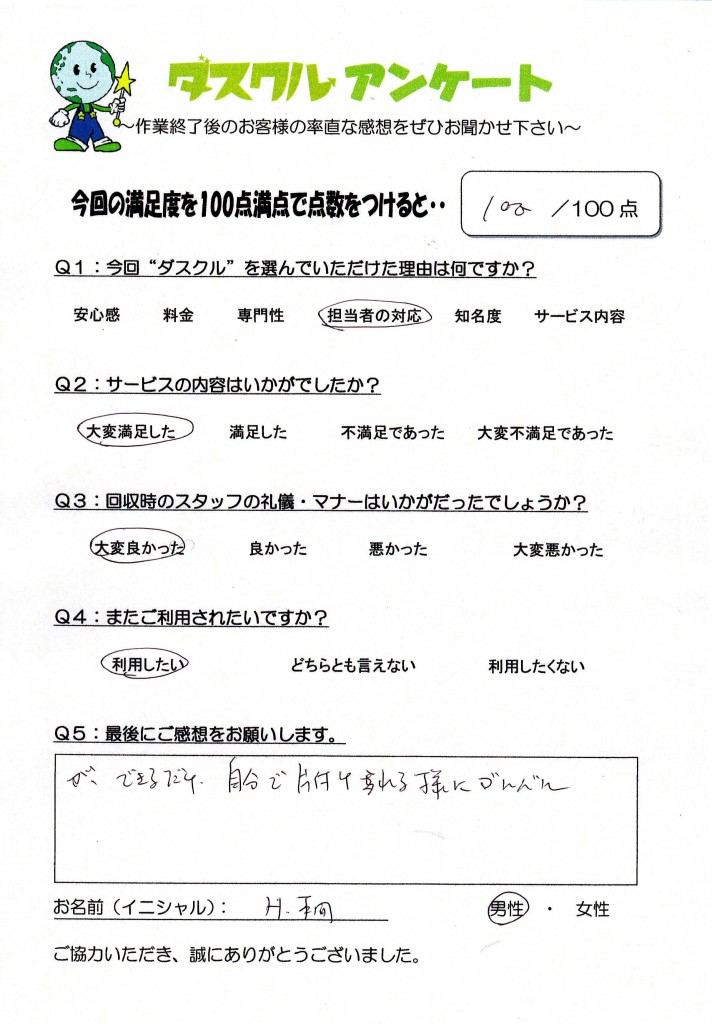 ダスクル アンケート
～作業終了後のお客様の率直な感想をぜひお聞かせ下さい～
今回の満足度を100点満点で点数をつけると‥ 100 /100点
Q1：今回“ダスクル”を選んでいただけた理由は何ですか？
安心感 料金 専門性 担当者の対応 知名度 サービス内容
Q2：サービスの内容はいかがでしたか？
大変満足した 満足した 不満足であった 大変不満足であった
Q3：回収時のスタッフの礼儀・マナーはいかがだったでしょうか？
大変良かった 良かった 悪かった 大変悪かった
Q4：またご利用されたいですか？
利用したい どちらとも言えない 利用したくない
Q5：最後にご感想をお願いします。
が、できるだけ、自分で片付け られる様に
お名前（イニシャル）： H.
男性 ・ 女性
ご協力いただき、誠にありがとうございました。